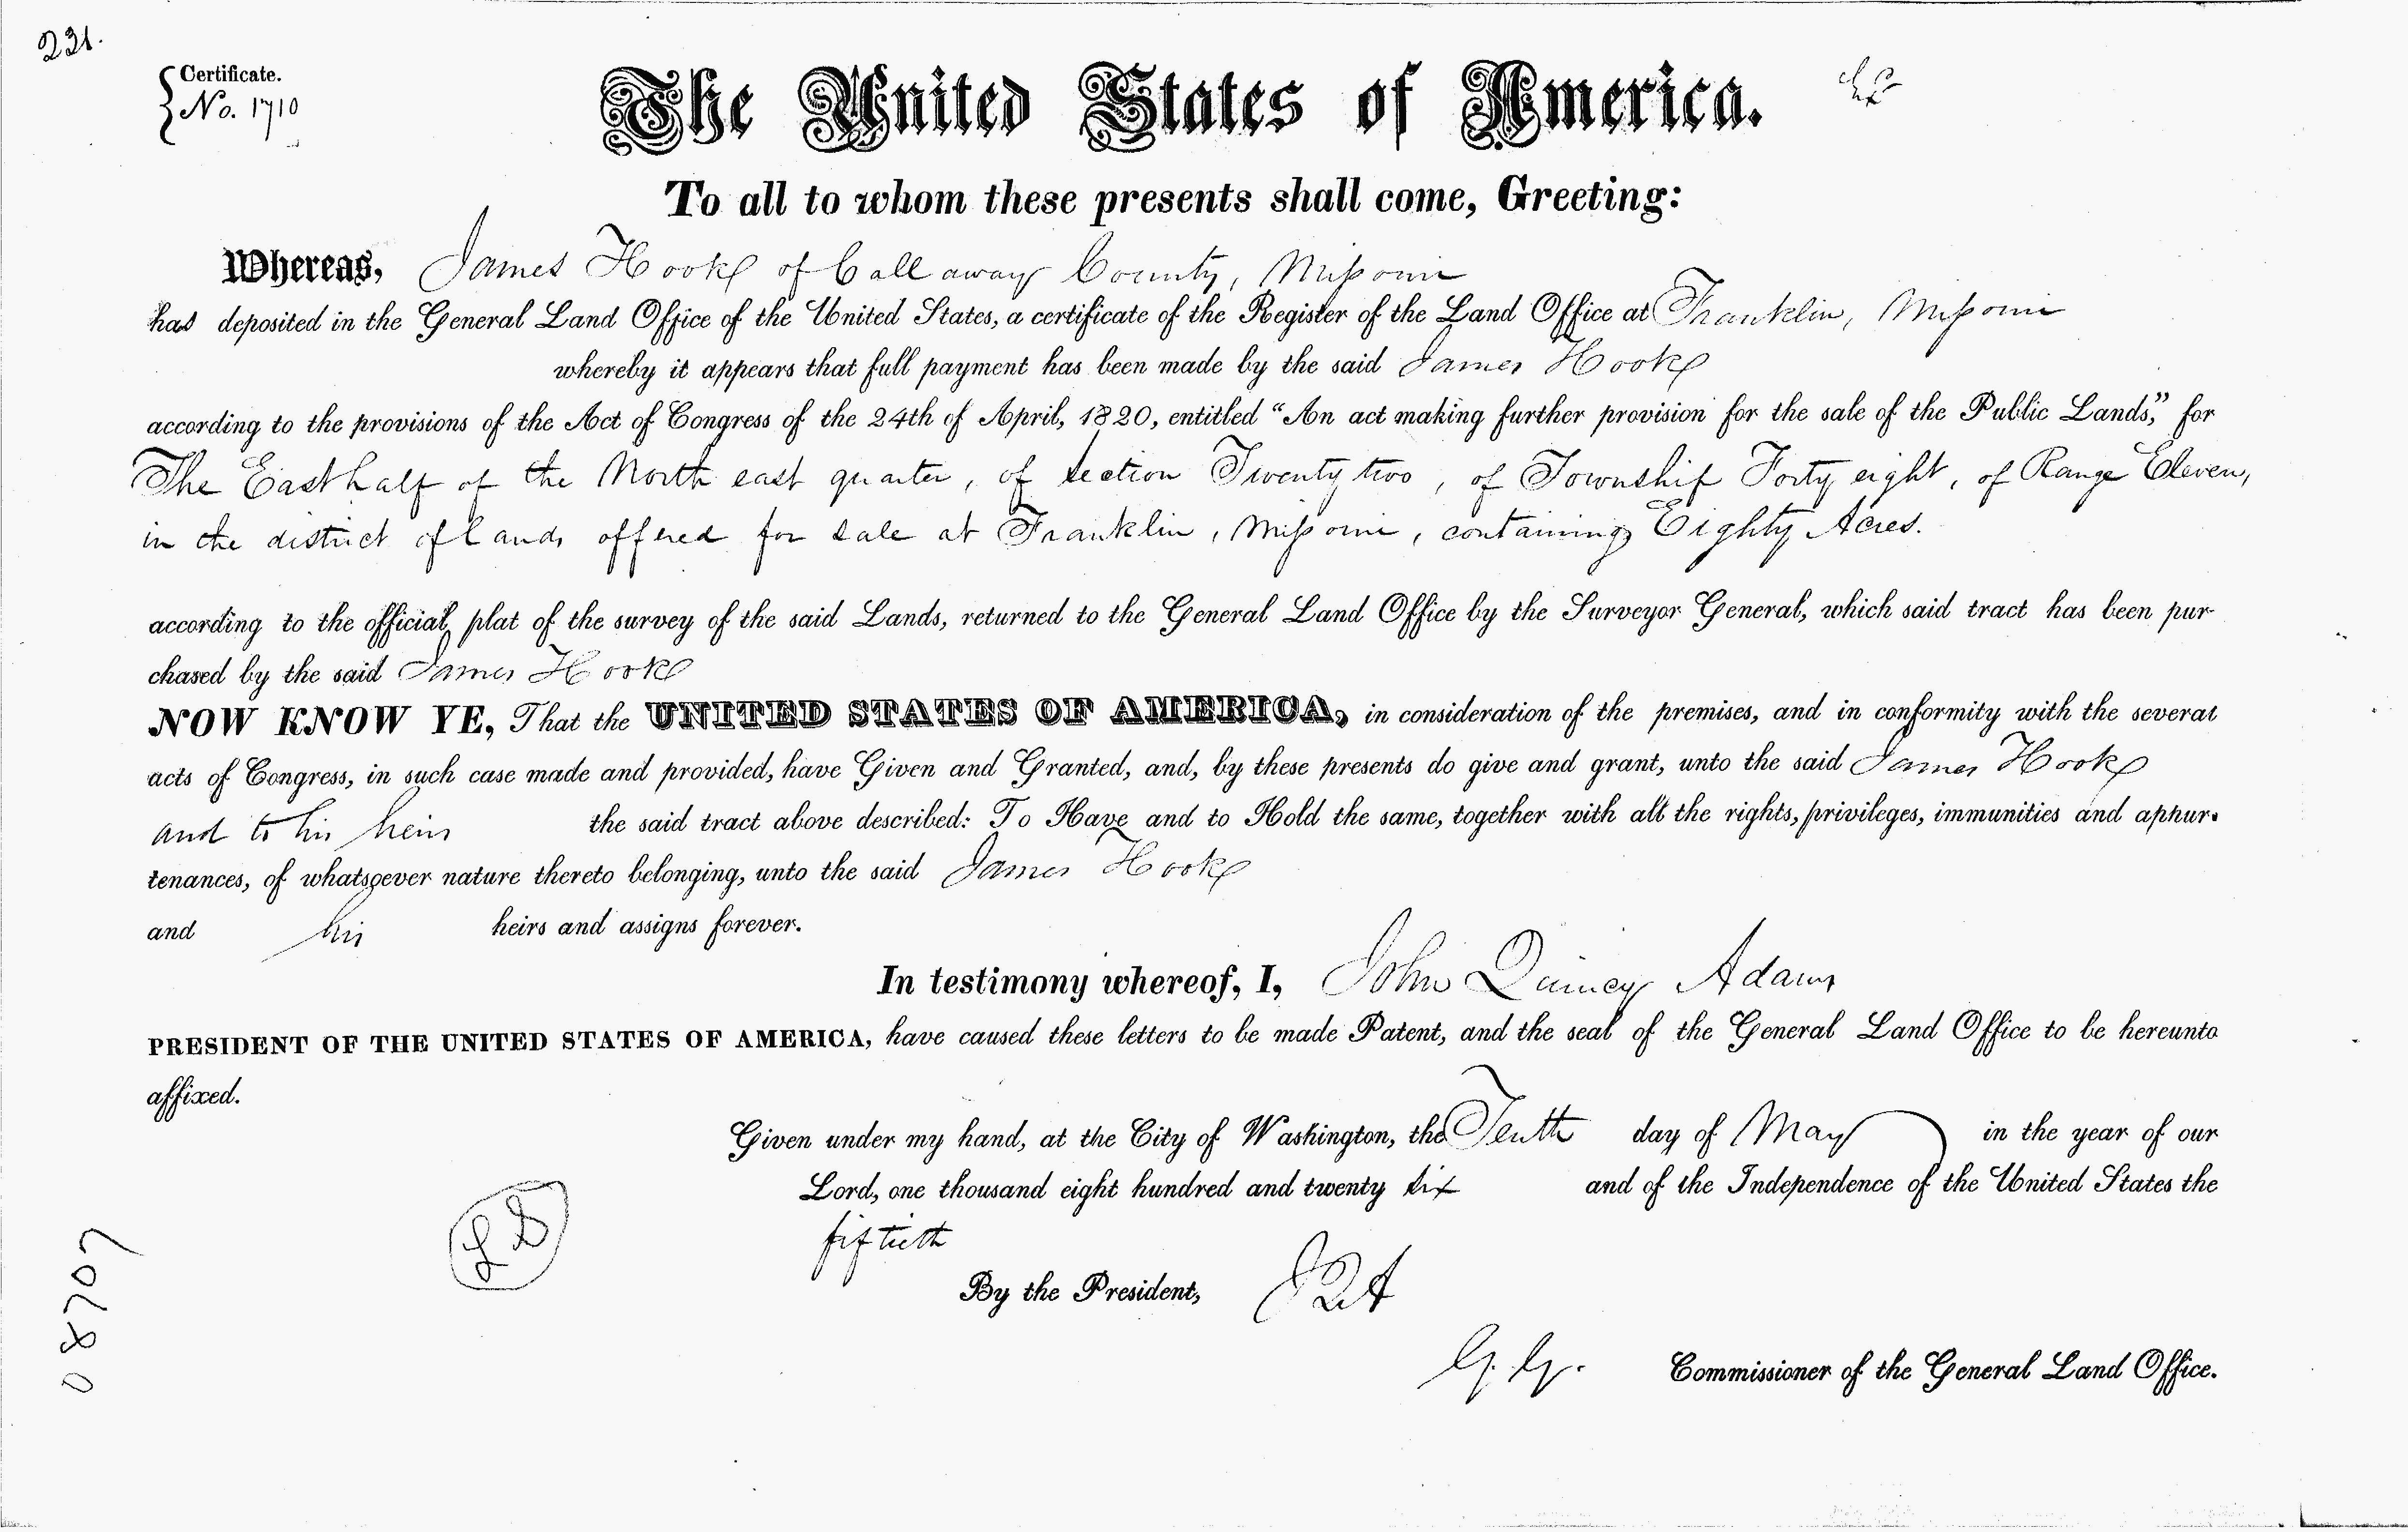 231.
Certificate.
No. 1710
The United States of America.
To all to whom these presents shall come, Greeting:
Whereas, James Hook of Callaway County, Missouri
has deposited in the General Land Office of the United States, a certificate of the Register of the Land Office at Franklin, Missouri
whereby it appears that full payment has been made by the said James Hook
according to the provisions of the Act of Congress of the 24th of April, 1820, entitled “An act making further provision for the sale of the Public Lands,” for
The East half of the North east quarter, of section Twenty two, of Township Forty eight, of Range Eleven,
in the district of Lands offered for sale at Franklin, Missouri, containing Eighty Acres.
according to the official plat of the survey of the said Lands, returned to the General Land Office by the Surveyor General, which said tract has been pur-
chased by the said James Hook
NOW KNOW YE, That the UNITED STATES OF AMERICA, in consideration of the premises, and in conformity with the several
acts of Congress, in such case made and provided, have Given and Granted, and, by these presents do give and grant, unto the said James Hook
and to his heirs the said tract above described: To Have and to Hold the same, together with all the rights, privileges, immunities and appur-
tenances, of whatsoever nature thereto belonging, unto the said James Hook
and his heirs and assigns forever.
In testimony whereof, I, John Quincy Adams
PRESIDENT OF THE UNITED STATES OF AMERICA, have caused these letters to be made Patent, and the seal of the General Land Office to be hereunto
affixed.
Given under my hand, at the City of Washington, the Tenth day of May in the year of our
Lord, one thousand eight hundred and twenty six and of the Independence of the United States the
fiftieth
LS
By the President, JQA
G. G. Commissioner of the General Land Office.
08707